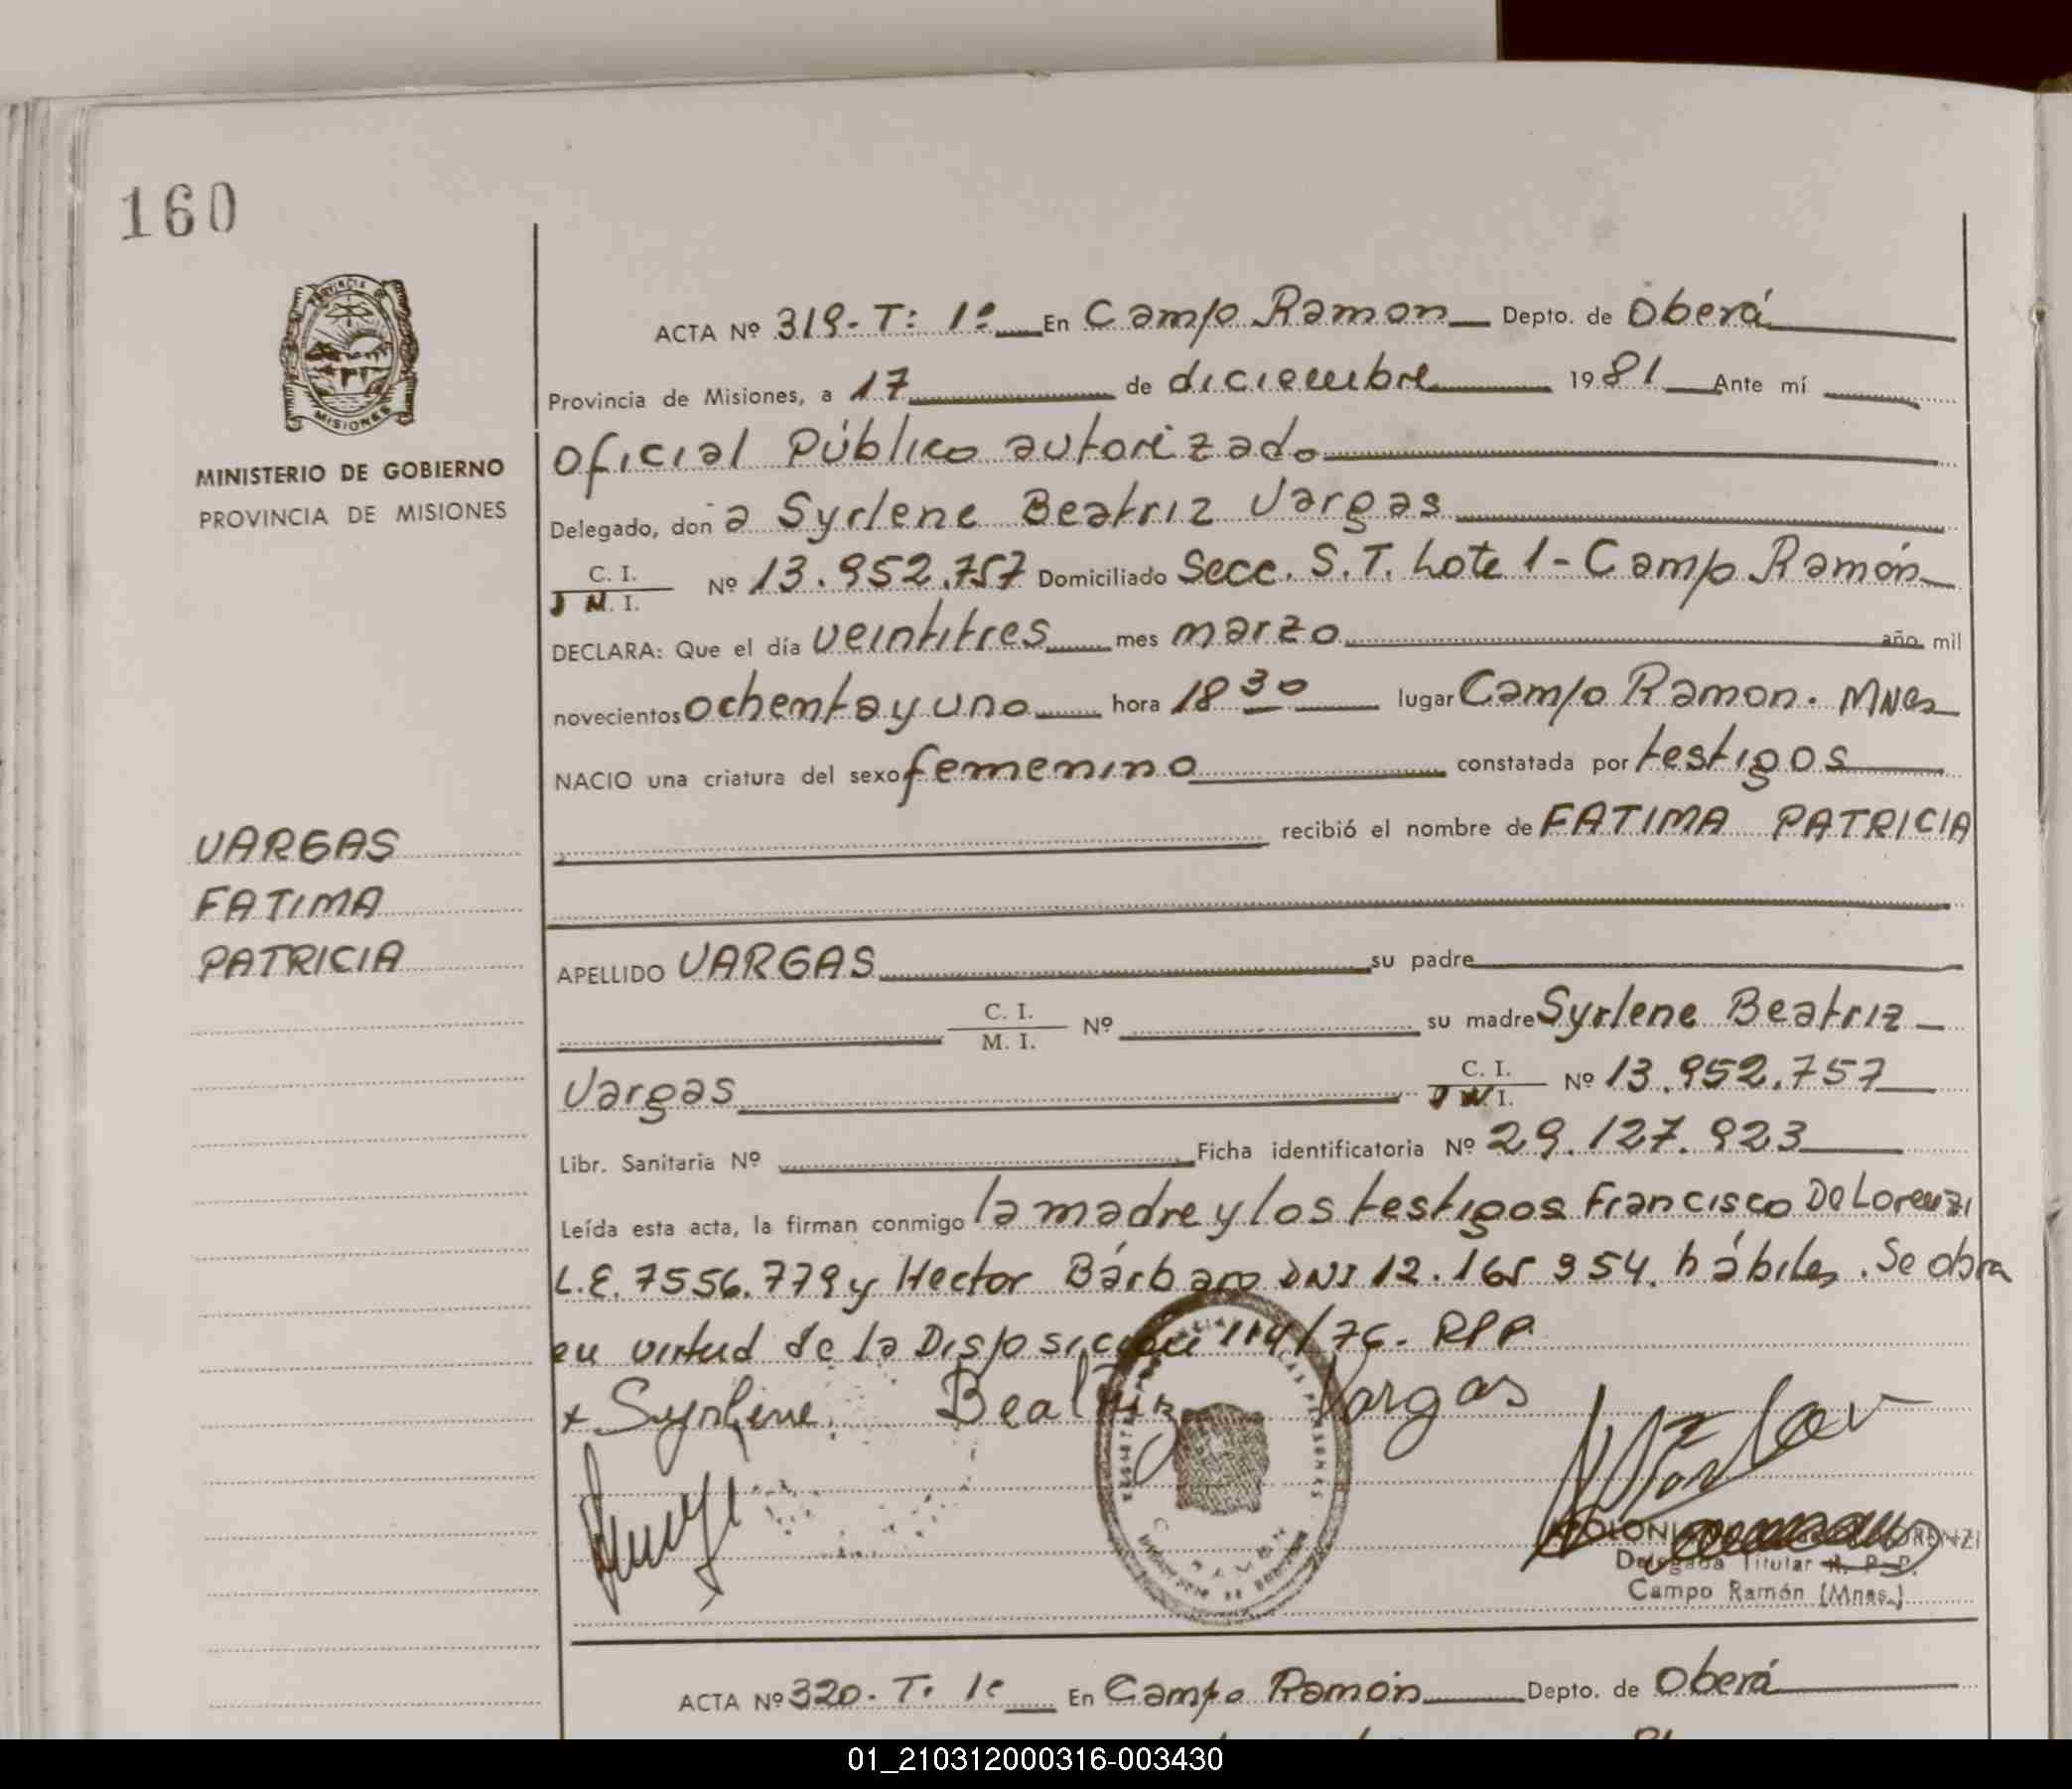 160
PROVINCIA DE
MISIONES
MINISTERIO DE GOBIERNO
PROVINCIA DE MISIONES
VARGAS
FATIMA
PATRICIA
ACTA Nº 319- T: 1º En Campo Ramon Depto. de Oberá
Provincia de Misiones, a 17 de diciembre 1981 Ante mí
Oficial Público autorizado
Delegado, don a Syrlene Beatriz Vargas
C. I. M. I. Nº 13.952.757 Domiciliado Secc. S.T. Lote 1 - Campo Ramón
DECLARA: Que el día veintitres mes marzo año mil
novecientos ochenta y uno hora 18 30 lugar Campo Ramon. Mnes
NACIO una criatura del sexo femenino constatada por testigos
recibió el nombre de FATIMA PATRICIA
APELLIDO VARGAS su padre
C. I. M. I. Nº su madre Syrlene Beatriz
Vargas C. I. Nº 13.952.757
Libr. Sanitaria Nº Ficha identificatoria Nº 29.127.923
Leída esta acta, la firman conmigo la madre y los testigos Francisco De Lorenzi
L.E. 7556.779 y Hector Bárbaro DNI 12.165 954. hábiles. Se obra
en virtud de la Disposición 114/76- RPP
x Syrlene Beatriz Vargas
Delegada Titular R. P. P.
Campo Ramón (Mnes.)
ACTA Nº 320- T. 1º En Campo Ramón Depto. de Oberá
01_210312000316-003430